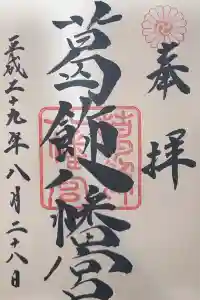 奉拝
葛飾八幡宮
平成二十九年八月二十八日